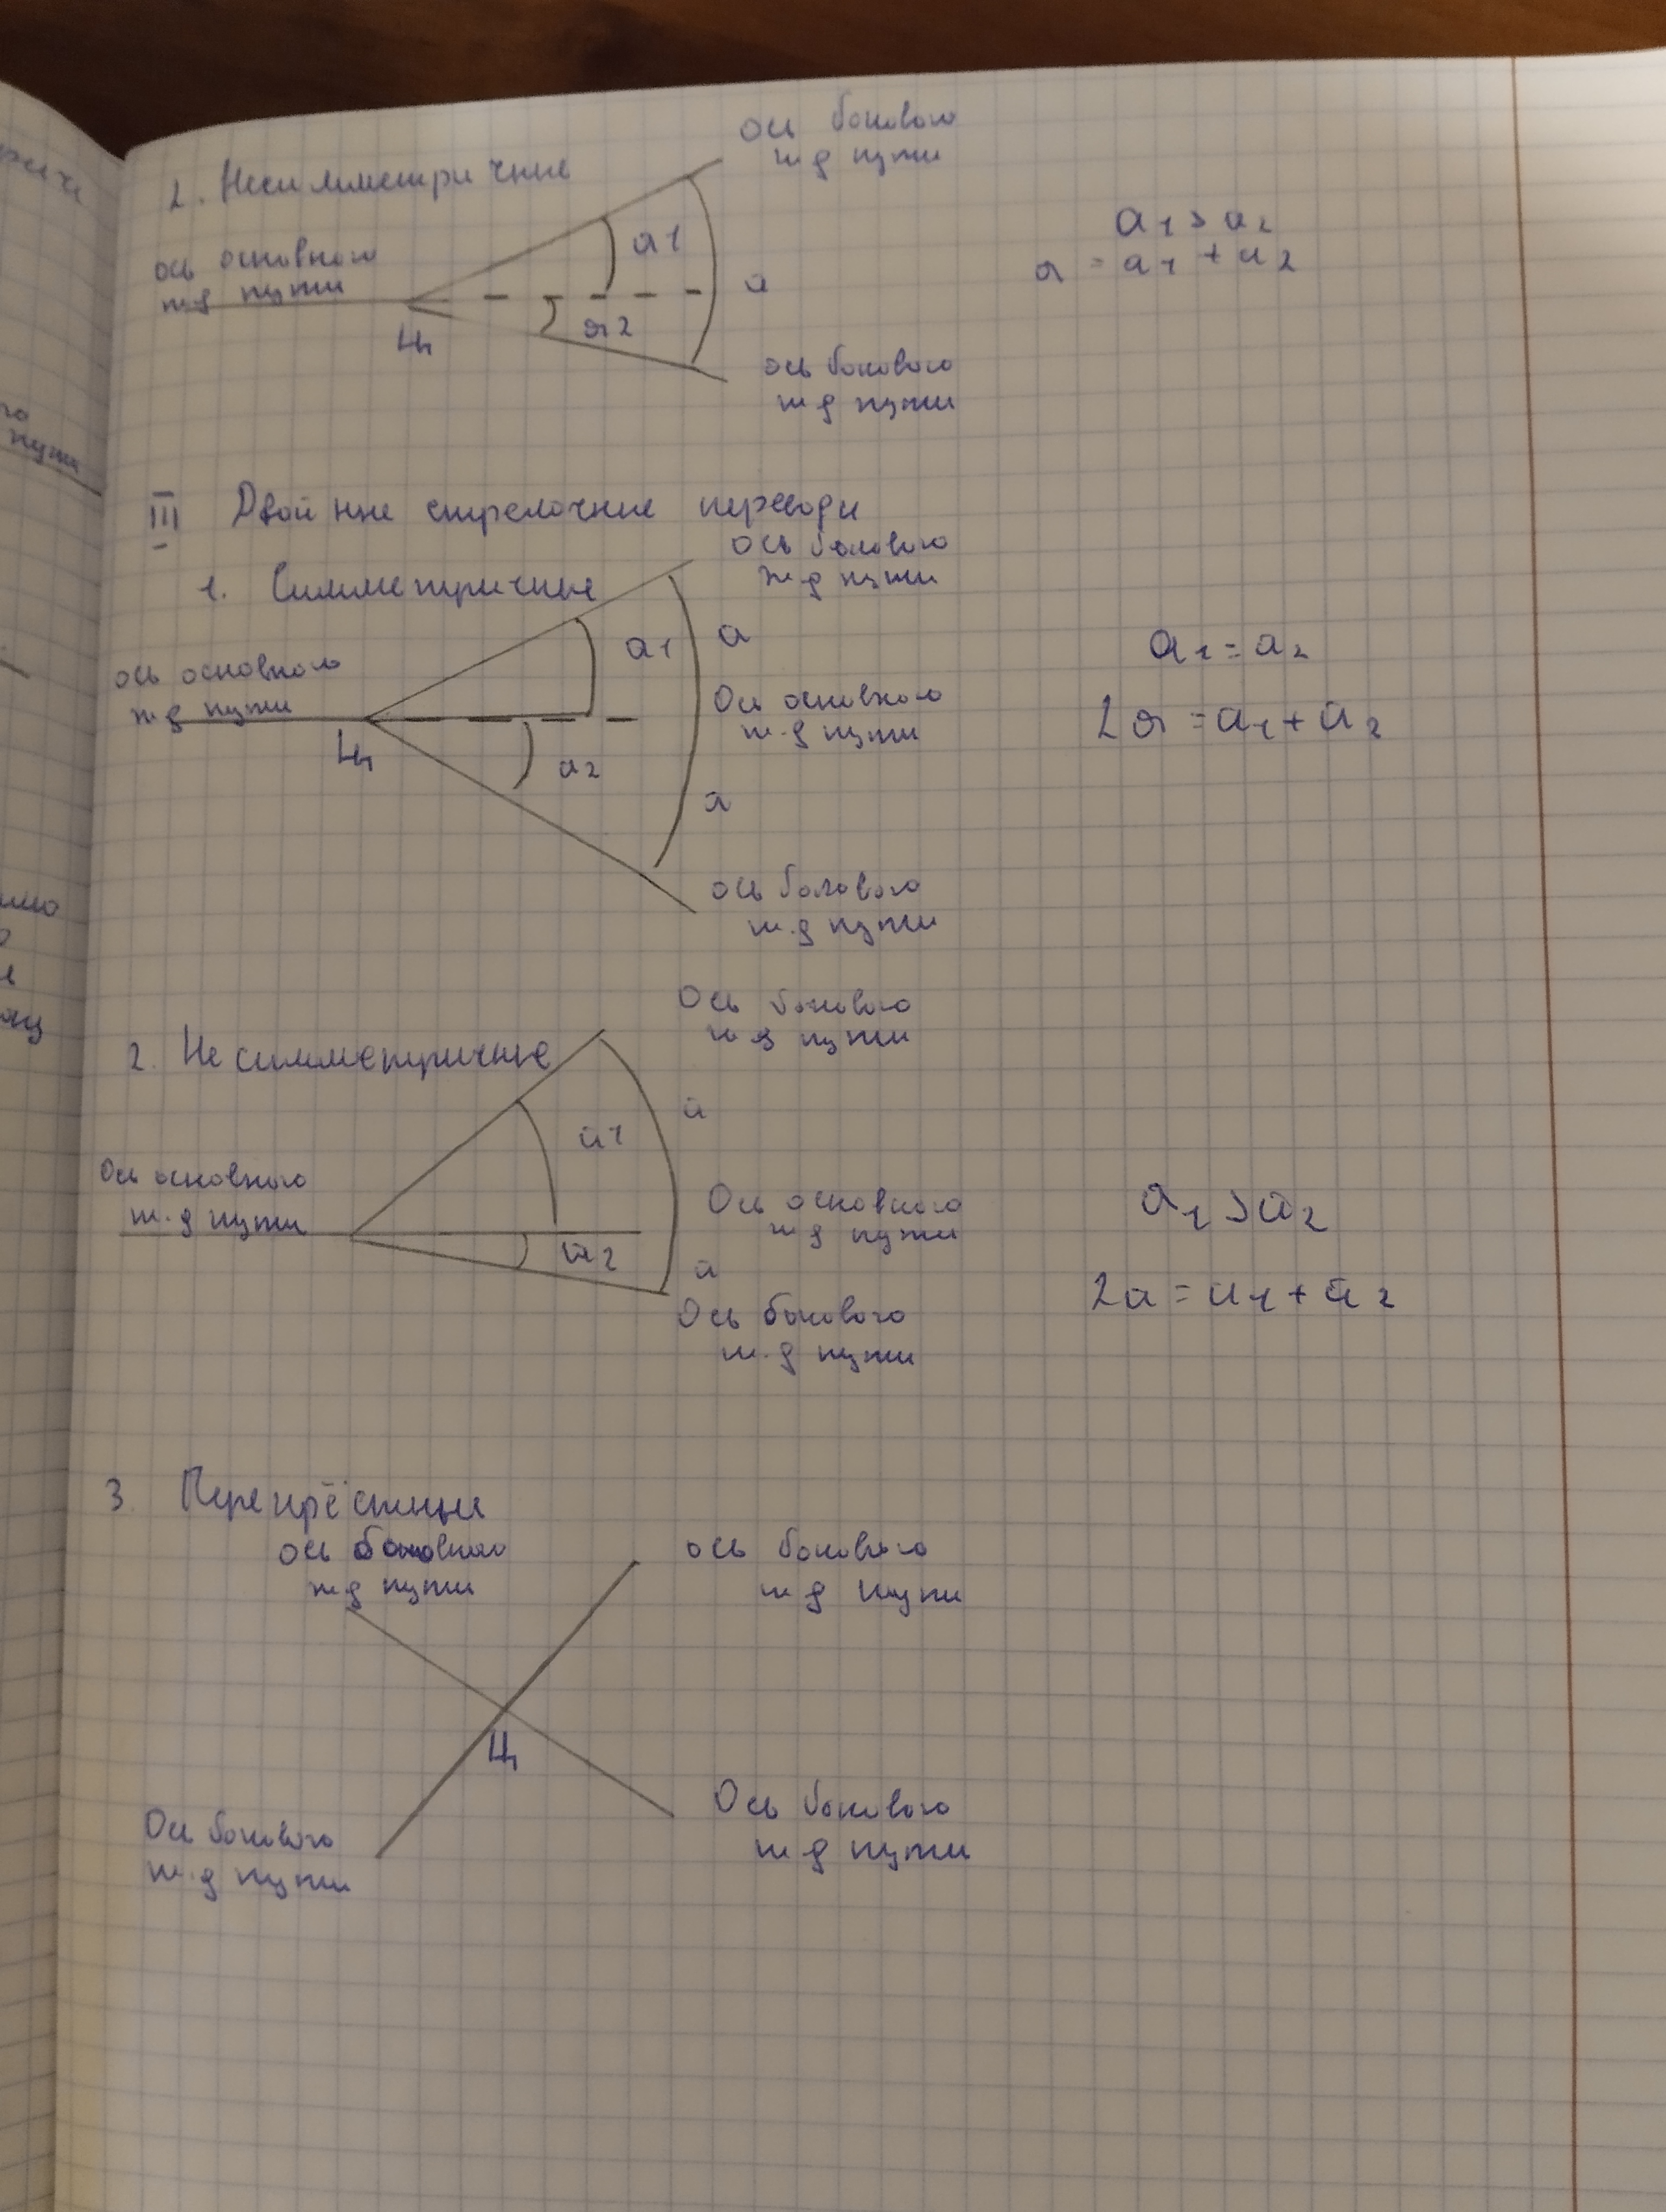 2. Несимметричные
Ось бокового
ж д пути
ось основного
ж д пути
а1
а
а2
Ц
ось бокового
ж д пути
а1 > а2
а = а1 + а2
III Двойные стрелочные переводы
1. Симметричные
ось бокового
ж д пути
ось основного
ж д пути
а1
а
Ось основного
ж.д пути
Ц
а2
а
ось бокового
ж.д пути
а1 = а2
2а = а1 + а2
2. Несимметричные
Ось бокового
ж д пути
Ось основного
ж.д пути
а1
а
Ось основного
ж д пути
а2
а
Ось бокового
ж.д пути
а1 > а2
2а = а1 + а2
3. Перекрёстные
ось бокового
ж д пути
ось бокового
ж д пути
Ц
Ось бокового
ж.д пути
Ось бокового
ж д пути
пути